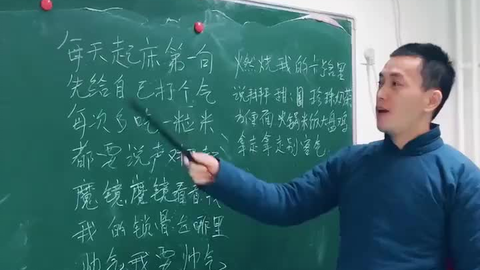 每天起床第一句
先给自己打个气
每次多吃一粒米
都要说声对
魔镜魔镜看看我
我的锁骨在哪里
帅气我要帅气
燃烧我的卡路里
说拜拜 甜 珍珠奶茶
方便面 火锅米饭大盘鸡
拿走拿走别客气